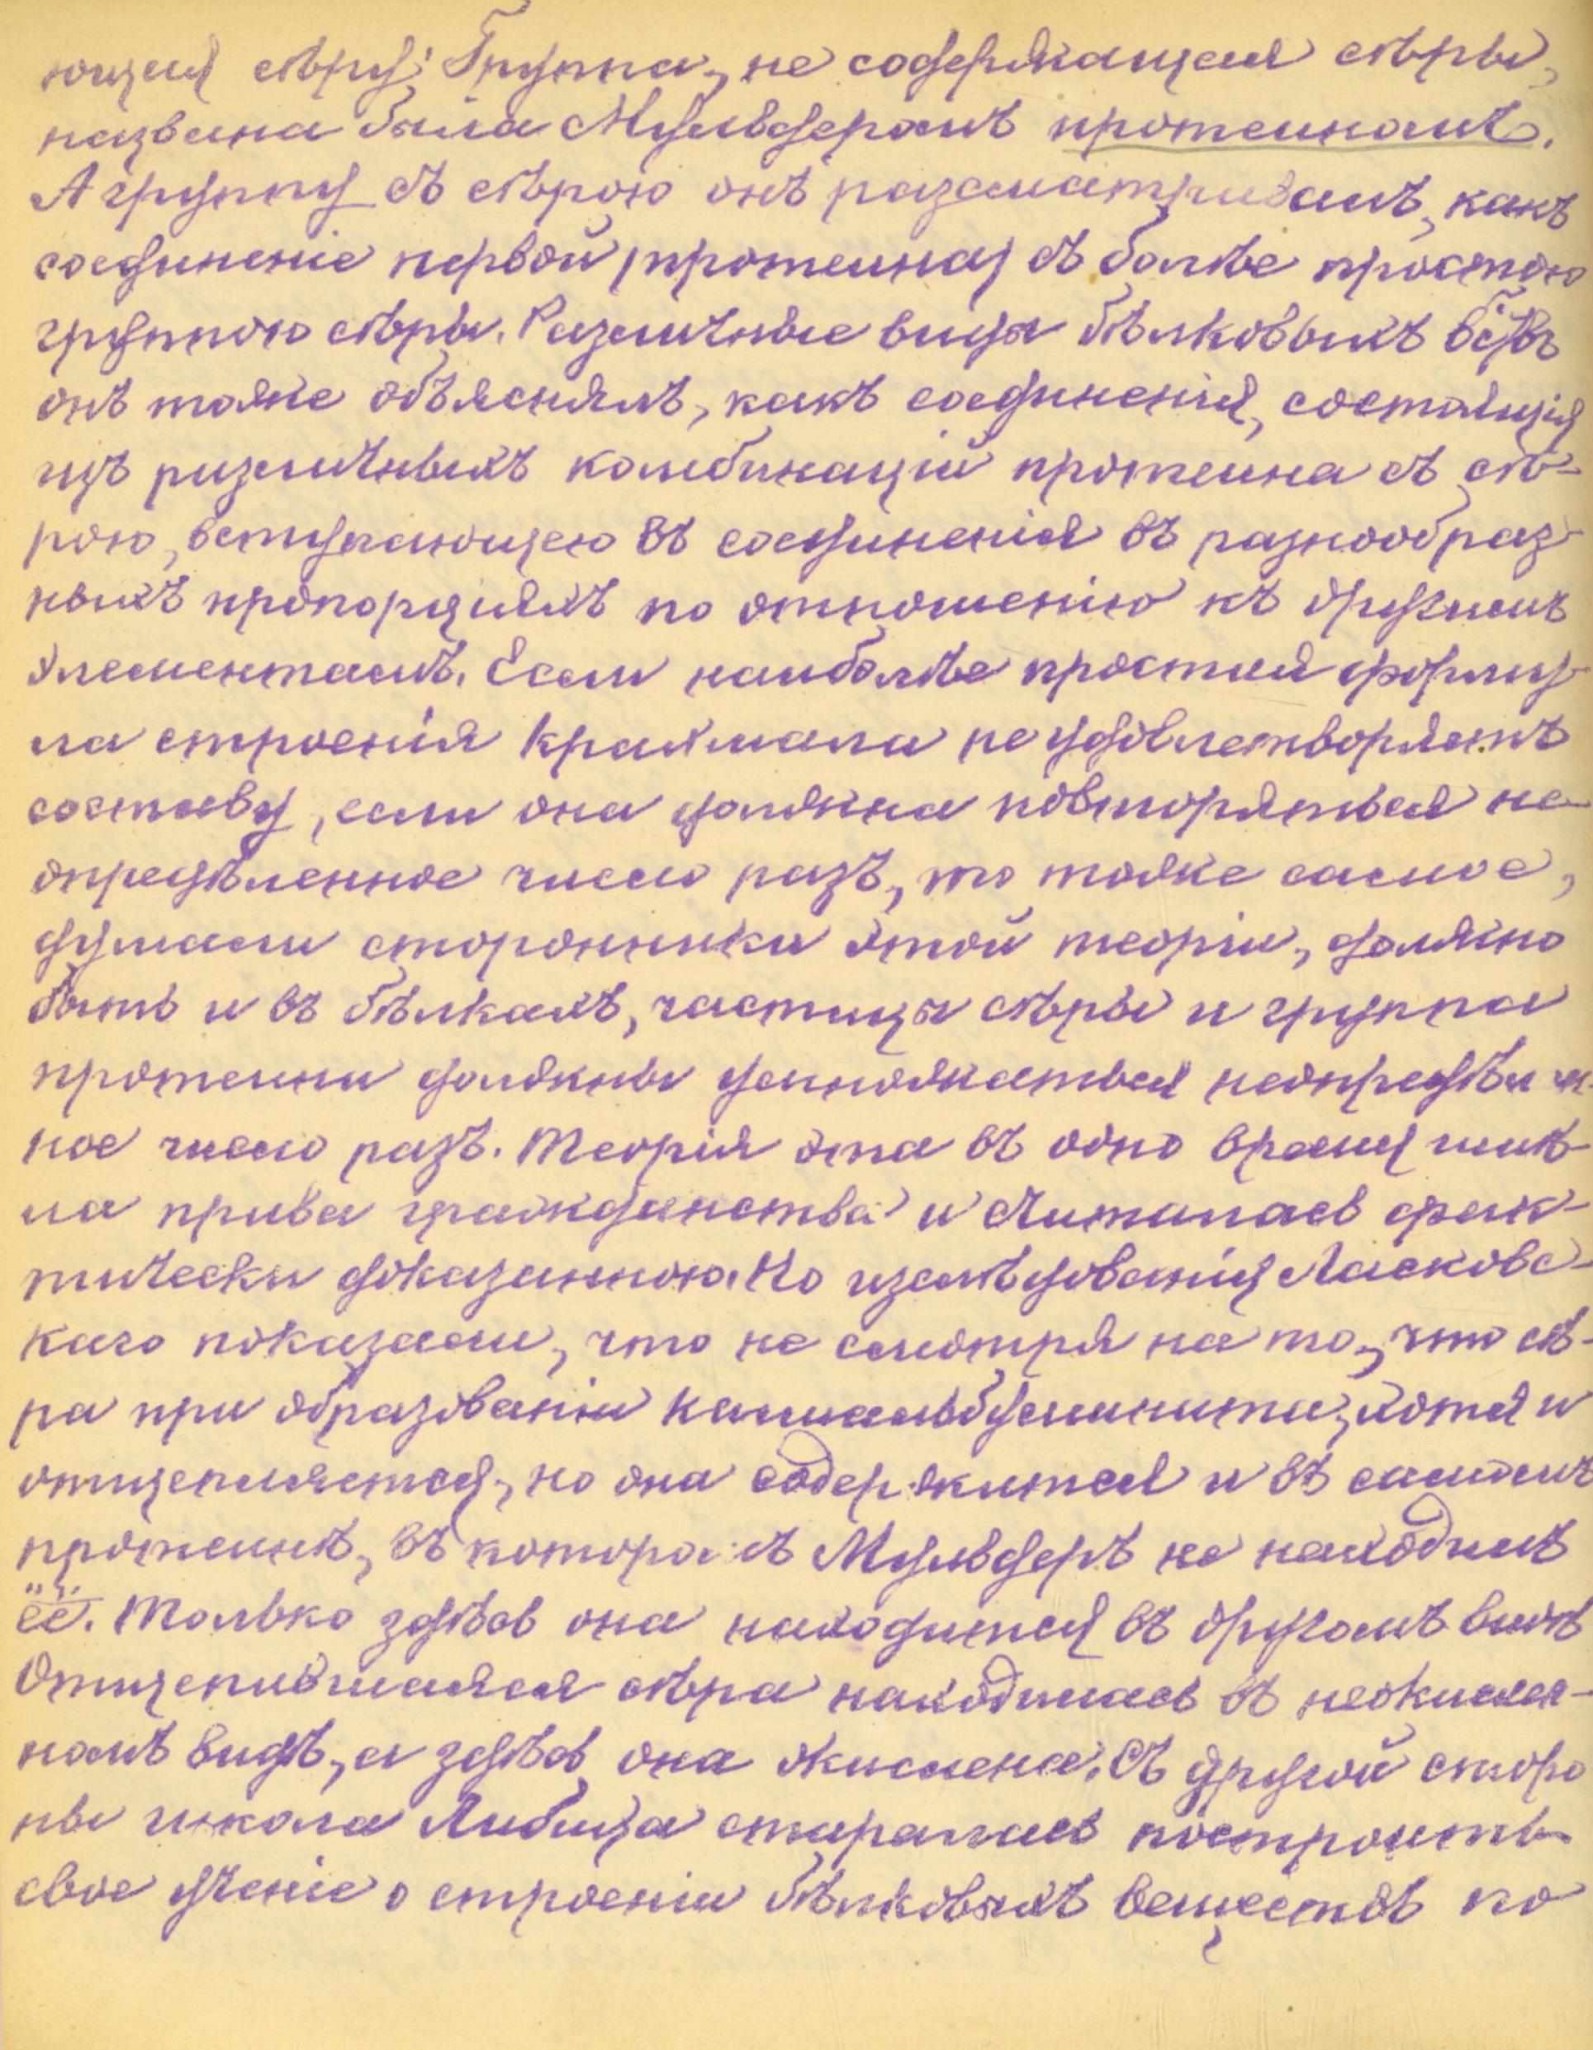 ющуя сѣру: Группа, не содержащая сѣры,
названа была Мульдеромъ протеиномъ.
А группу съ сѣрою онъ разсматривалъ, какъ
соединеніе первой (протеина) съ болѣе простою
группою сѣры. Различные виды бѣлковыхъ в-ствъ
онъ тоже объяснялъ, какъ соединенія, состоящія
изъ различныхъ комбинацій протеина съ сѣ-
рою, вступающею въ соединенія въ разнообраз-
ныхъ пропорціяхъ по отношенію къ другимъ
элементамъ. Если наиболѣе простая форму-
ла строенія крахмала не удовлетворяетъ
составу, если она должна повторяться не-
опредѣленное число разъ, то тоже самое,
думали сторонники этой теоріи, должно
быть и въ бѣлкахъ, частицы сѣры и группа
протеина должны умножаться неопредѣлен-
ное число разъ. Теорія эта въ одно время имѣ-
ла права гражданства и считалась фак-
тически доказанною. Но изслѣдованія Лясковс-
каго показали, что не смотря на то, что сѣ-
ра при образованіи калиальбумината, хотя и
отщепляется, но она содержится и въ самомъ
протеинѣ, въ которомъ Мульдеръ не находилъ
её. Только здѣсь она находится въ другомъ видѣ
Отщепившаяся сѣра находилась въ неокислен-
номъ видѣ, а здѣсь она окислена. Съ другой сторо
ны школа Либиха старалась построить
свое ученіе о строеніи бѣлковыхъ веществъ по